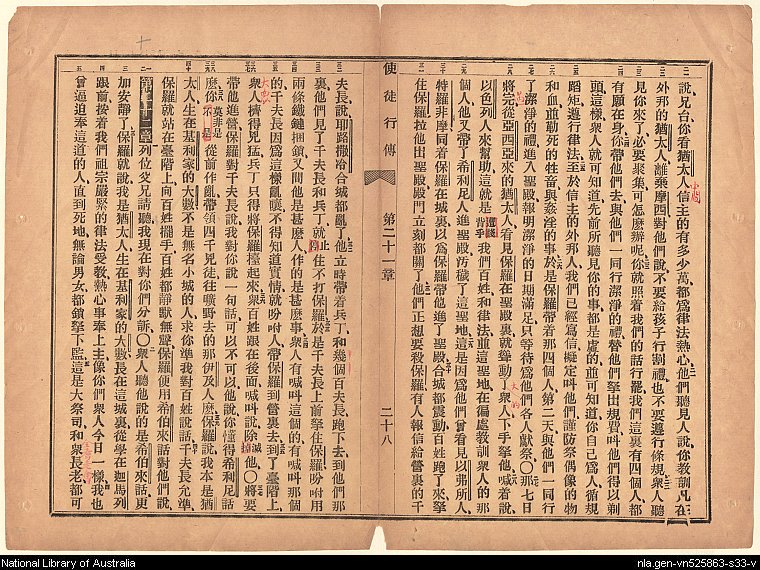 說兄台你看猶太人信主的有多少萬都爲律法熱心他們聽見人說你教訓凡在
外邦的猶太人離棄摩西對他們說不要給孩子行割禮也不要遵行條規衆人聽
見你來了必要聚集可怎麼辦呢你就照着我們的話行罷我們這裏有四個人都
有願在身你帶他們去與他們一同行潔淨的禮替他們拏出規費叫他們得以剃
頭這樣衆人就可知道先前所聽見你的事都是虛的並可知道你自己爲人循規
蹈矩遵行律法至於信主的外邦人我們已經寫信擬定叫他們謹防祭偶像的物
和血並勒死的牲畜與姦淫的事於是保羅帶着那四個人第二天與他們一同行
了潔淨的禮進入聖殿報明潔淨的日期滿足只等待爲他們各人獻祭〇那七日
將完從亞西亞來的猶太人看見保羅在聖殿裏就聳動了衆人下手拏他喊着說
以色列人來幫助這就是 我們百姓和律法並這聖地在徧處教訓衆人的那
個人他又帶了希利尼人進聖殿汚穢了這聖地這是因爲他們曾看見以弗所人
特羅非摩同着保羅在城裏以爲保羅帶他進了聖殿合城都震動百姓跑了來拏
住保羅拉他出聖殿殿門立刻都關了他們正想要殺保羅有人報信給營裏的千
使徒行傳 第二十一章 二十八
夫長說耶路撒冷合城都亂了他立時帶着兵丁和幾個百夫長跑下去到他們那
裏他們見了千夫長和兵丁就 住不打保羅於是千夫長上前拏住保羅吩咐用
兩條鐵鏈捆鎖又問他是甚麽人作的是甚麽事衆人有喊叫這個的有喊叫那個
的千夫長因爲這樣亂嚷不得知道實情就吩咐人帶保羅到營裏去到了臺階上
衆人擠得兇猛兵丁只得將保羅擡起來衆百姓跟在後面喊叫說除滅他〇將要
帶他進營保羅對千夫長說我對你說一句話可以不可以他說你懂得希利尼話
麼你莫非是從前作亂帶領四千兇徒往曠野去的那伊及人麼保羅說我本是猶
太人生在基利家的大數不是無名小城的人求你準我對百姓說話千夫長允準
保羅就站在臺階上向百姓擺手百姓都靜默無聲保羅便用希伯來話對他們說
第二十二章列位父兄請聽我現在對你們分訴〇衆人聽他說的是希伯來話更
加安靜了保羅就說我是猶太人生在基利家的大數長在這城裏從學在迦馬列
跟前按着我們祖宗嚴緊的律法受教熱心事奉上主像你們衆人今日一樣我也
曾逼迫奉這道的人直到死地無論男女都鎖拏下監這是大祭司和衆長老都可
National Library of Australia
nla.gen-vn525863-s33-v